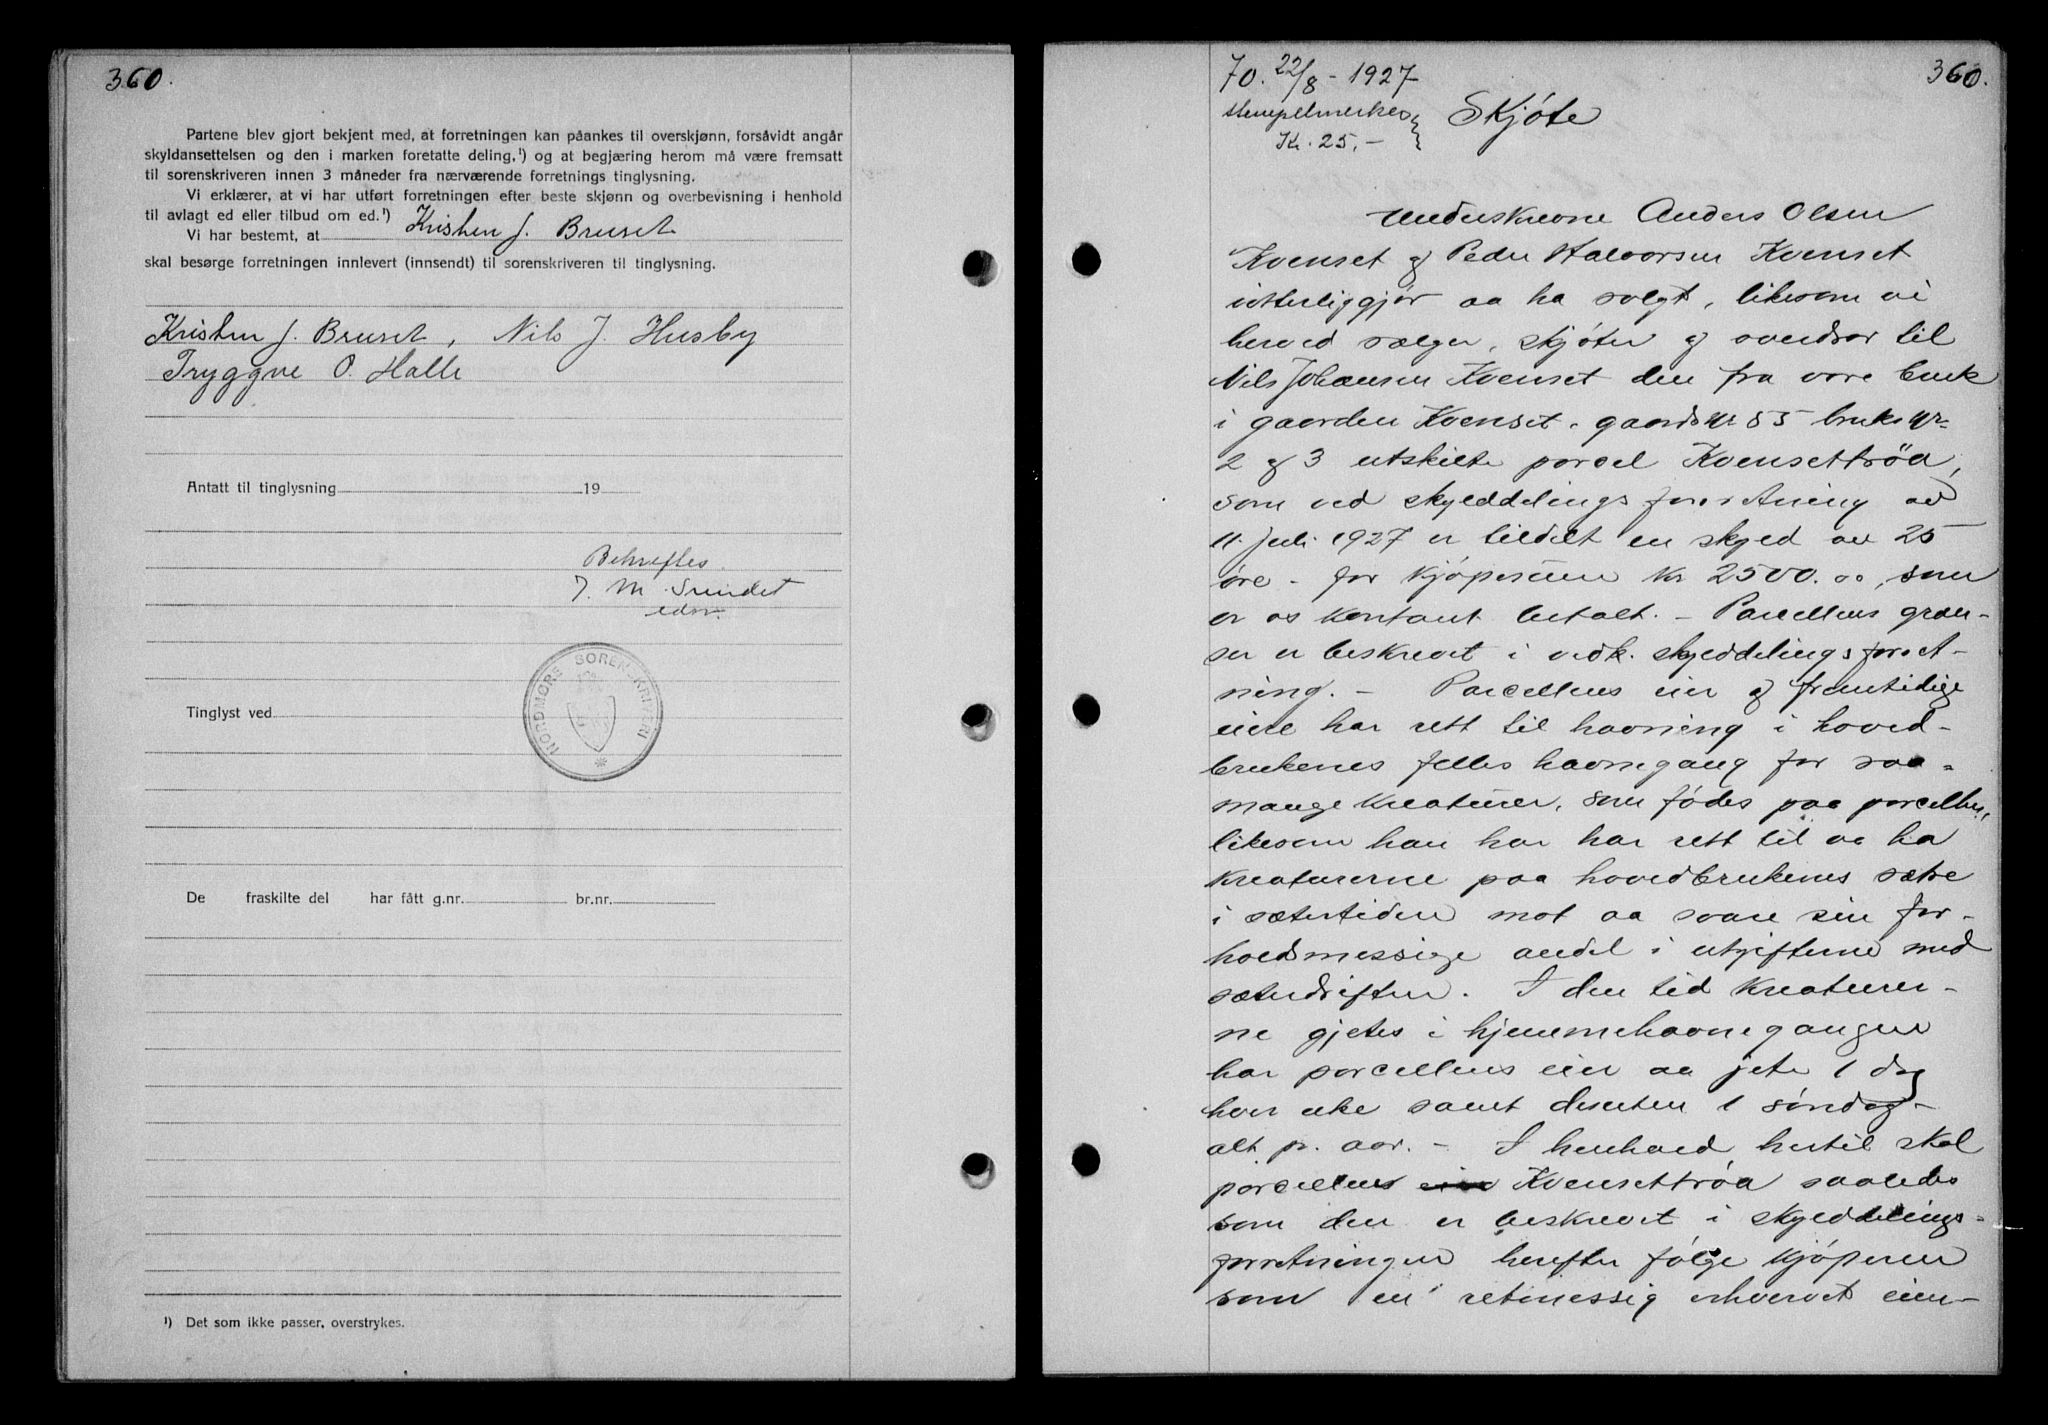 360.
Partene blev gjort bekjent med, at forretningen kan påankes til overskjønn, forsåvidt angår
skyldansettelsen og den i marken foretatte deling,¹) og at begjæring herom må være fremsatt
til sorenskriveren innen 3 måneder fra nærværende forretnings tinglysning.
Vi erklærer, at vi har utført forretningen efter beste skjønn og overbevisning i henhold
til avlagt ed eller tilbud om ed.¹)
Vi har bestemt, at Kristen J. Bruset
skal besørge forretningen innlevert (innsendt) til sorenskriveren til tinglysning.
Kristen J. Bruset, Nils J. Husby
Tryggve O. Halle
Antatt til tinglysning 19
Bekreftes
J. M. Sundet
edsv.
NORDMØRE SORENSKRIVERI
Tinglyst ved
De fraskilte del har fått g.nr. br.nr.
¹) Det som ikke passer, overstrykes.
360.
70. 22/8 - 1927
Stempelmerker
Kr. 25,-
Skjøte
Underskrevne Anders Olsen
Kvenset og Peder Halvorsen Kvenset
vitterliggjør aa ha solgt, likesom vi
herved sælger, skjøter og overdrar til
Nils Johansen Kvenset den fra vore bruk
i gaarden Kvenset, gaards nr 55 bruks nr
2 og 3 utskilte parcel Kvensettrøa,
som ved skylddelingsforretning av
11. juli 1927 er tildelt en skyld av 25
øre - for kjøpesum Kr 2500.00, som
er os kontant betalt. - Parcellens græn-
ser er beskrevet i vedk. skylddelingsforret-
ning. - Parcellens eier og fremtidige
eiere har rett til havning i hoved-
brukenes felles havnegang for saa-
mange kreaturer, som fødes paa parcellen,
likesom han har har rett til aa ha
kreaturerne paa hovedbrukenes sætre
i sætertiden mot aa svare sin for-
holdsmessige andel i utgifterne med
sæterdriften. I den tid kreaturer-
ne gjetes i hjemmehavnegangene
har parcellens eier aa jete 1 dag
hver uke samt desuten 1 søndag -
alt pr. aar. - I henhold hertil skal
parcellens Kvensettrøa saaledes
som den er beskrevet i skylddelings-
forretningen herefter følge kjøperen
som en retmessig erhvervet eien-